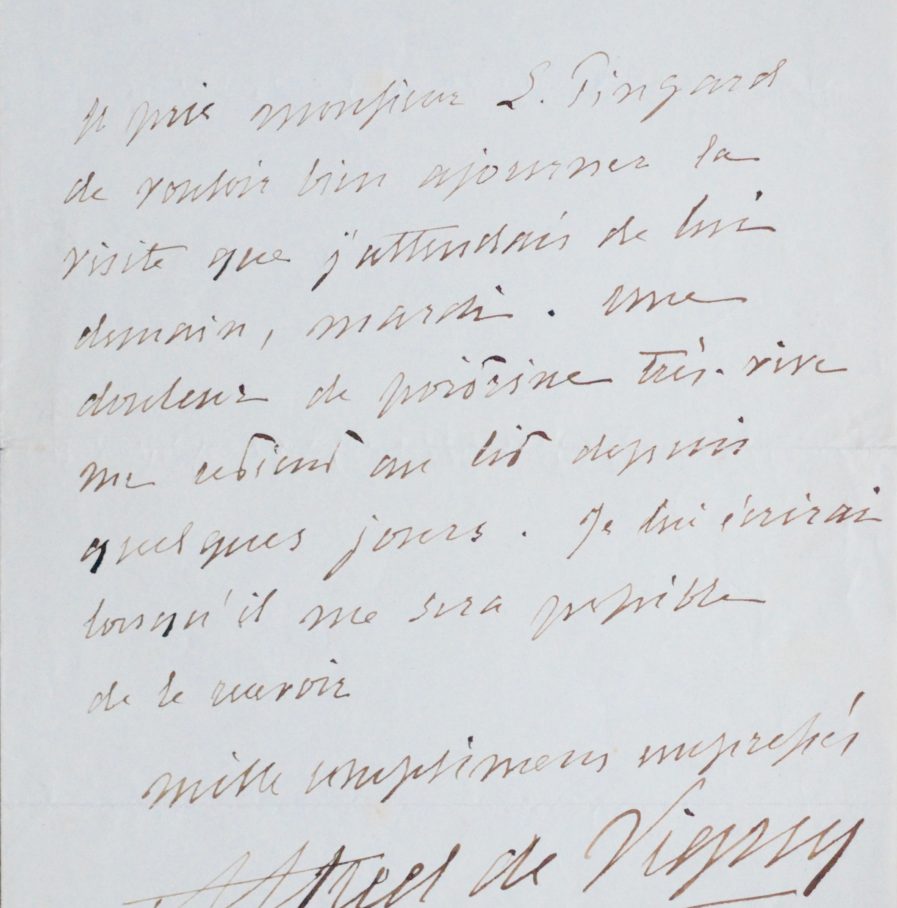 Je prie monsieur L. Pingard
de vouloir bien ajourner la
visite que j'attendais de lui
demain, mardi. une
douleur de poitrine très-vive
me retient au lit depuis
quelques jours. Je lui écrirai
lorsqu'il me sera possible
de le revoir
mille complimens empressés
Alfred de Vigny